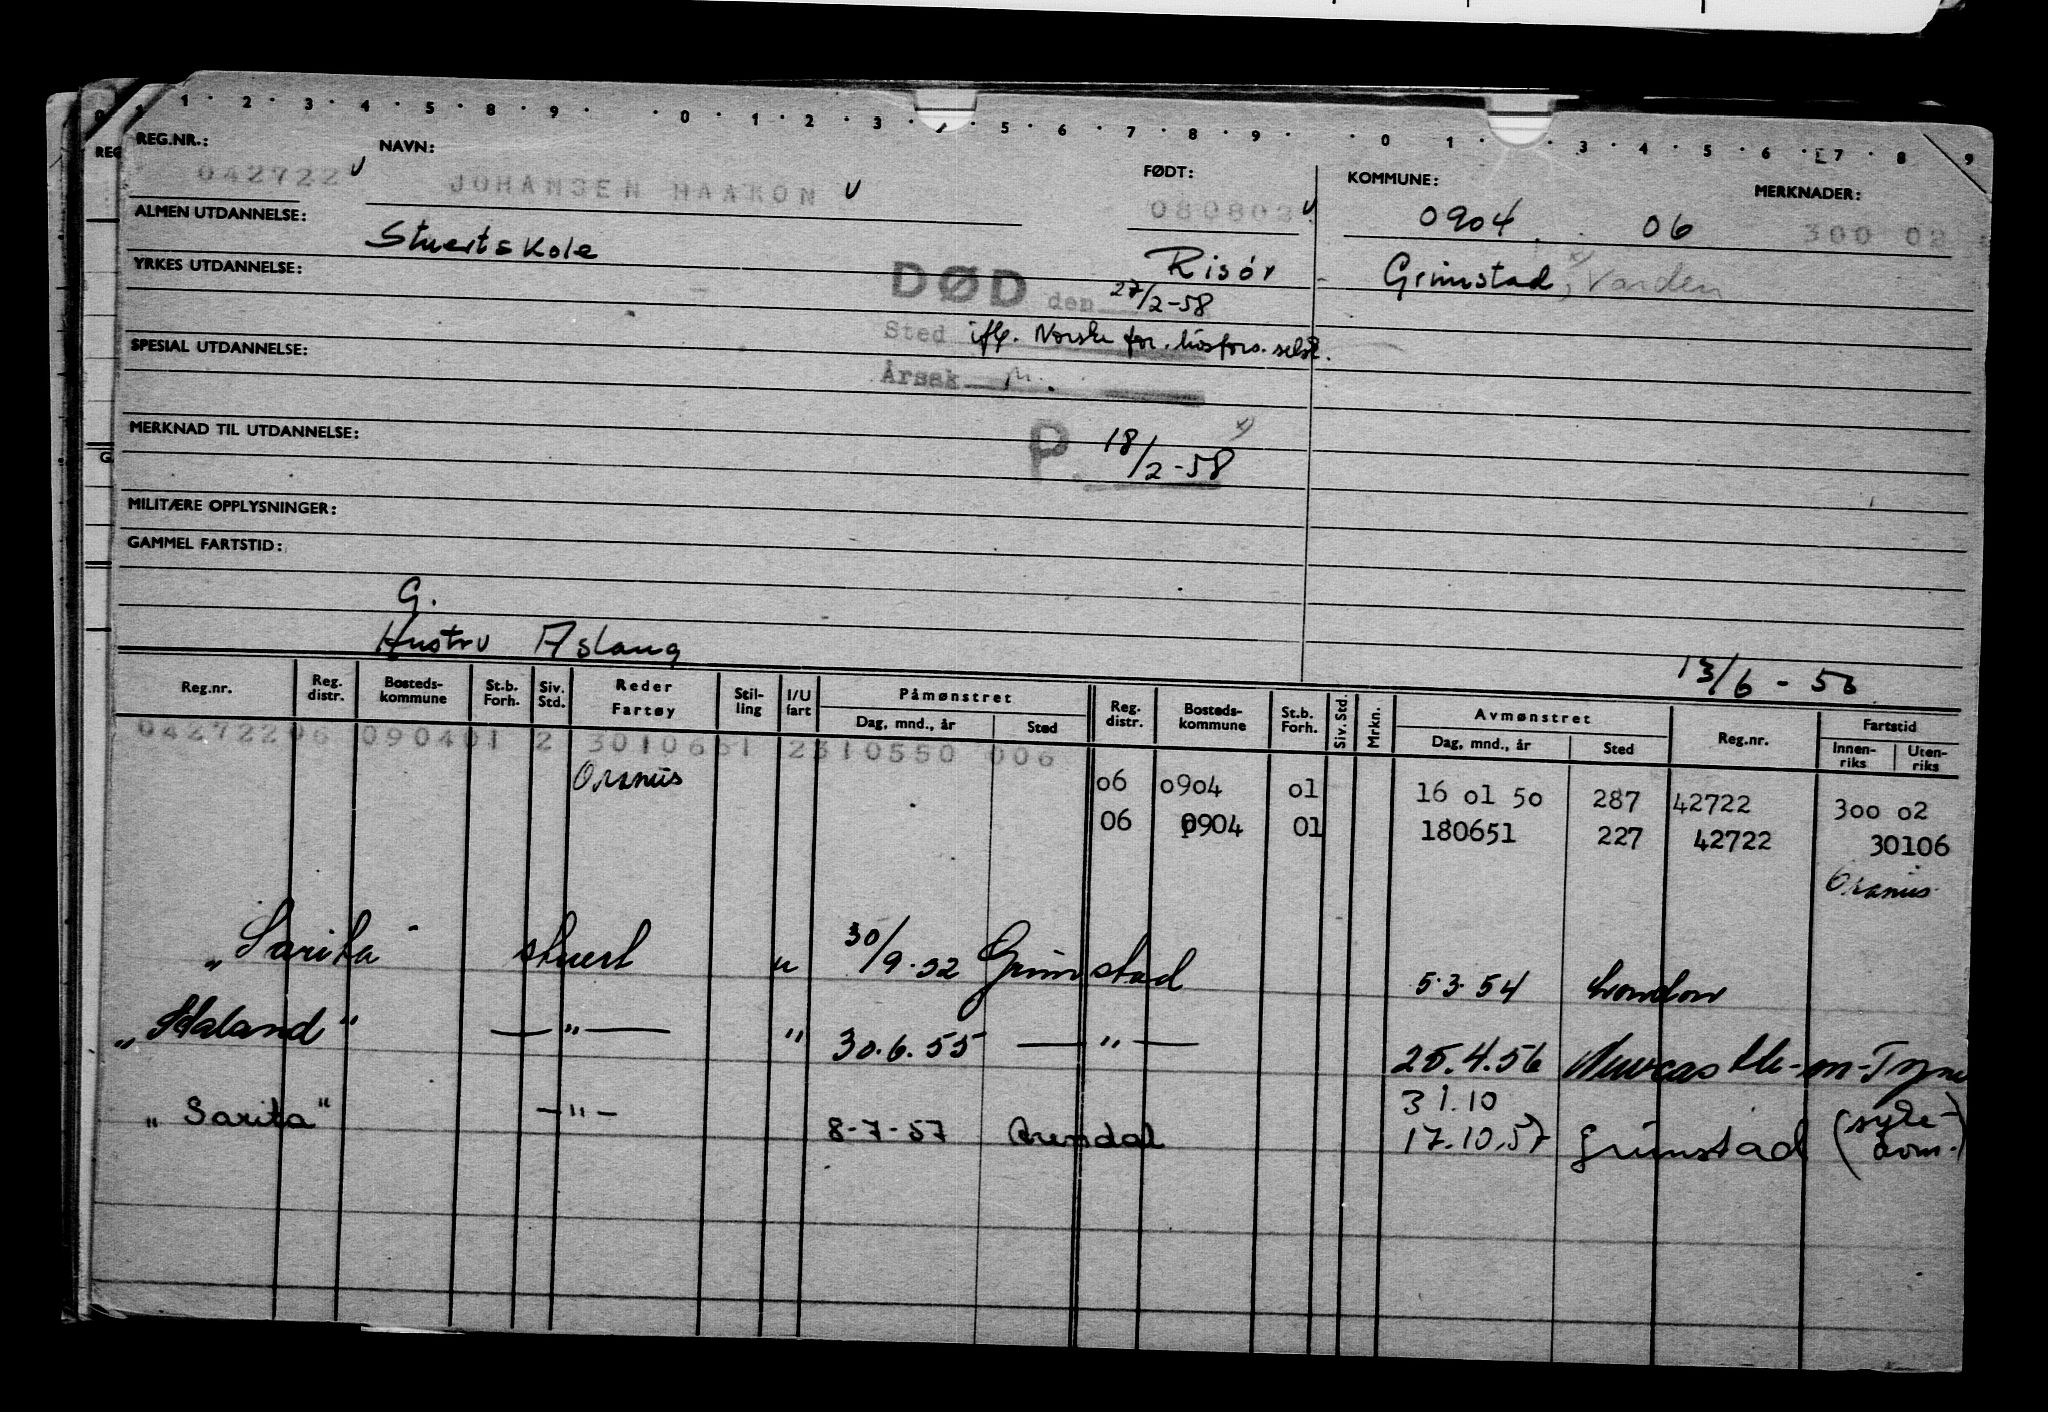 1 · 2 · 3 · 4 · 5 · 8 · 9 · · 0 · 1 · 2 · 3 · · 5 · 6 · 7 · 8 · 9 · · 0 1 · · 3 · 4 · 5 · 6 · 7 · 8 · 9
REG.NR.: NAVN: FØDT: KOMMUNE: MERKNADER:
042722 JOHANSEN HAAKON 080803 0904 06 300 02
ALMEN UTDANNELSE: Stuertskole Risör Grimstad, Varden
YRKES UTDANNELSE:
DØD den 27/2-58
Sted iflg. Norske for. livsfors. selsk.
SPESIAL UTDANNELSE:
Årsak
MERKNAD TIL UTDANNELSE:
P. 18/2-58 x)
MILITÆRE OPPLYSNINGER:
GAMMEL FARTSTID:
G.
Hustru Aslaug
13/6-
Reg.nr. Reg. distr. Bosteds-kommune St.b. Forh. Siv. Std. Reder Fartøy Stil-ling I/U fart Påmønstret Dag, mnd., år Sted Reg. distr. Bosteds-kommune St.b. Forh. Siv. Std. Mrkn. Avmønstret Dag, mnd., år Sted Reg.nr. Fartstid Innen-riks Uten-riks
04272206 090401 2 3010651 2310550 006
Oranus 06 0904 01 16 01 50 287 42722 300 02
06 0904 01 180651 227 42722 30106
Oranus
"Sarita" stuert u 30/9-52 Grimstad 5.3.54 London
"Haland" —"— " 30.6.55 —"— 25.4.56 Newcastle-on-Tyne
31.10
"Sarita" —"— 8-7-57 Arendal 17.10.57 Grimstad (syke-avm.)